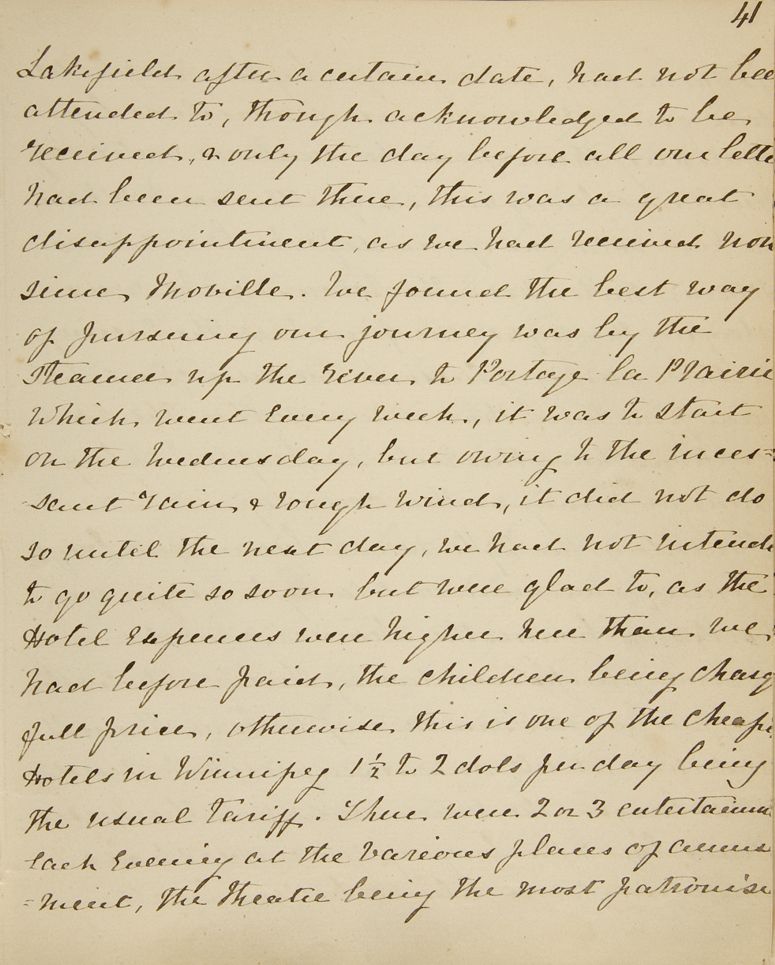 41
Lakefield after a certain date, had not bee
attended to, though acknowledged to be
received, & only the day before all our lette
had been sent there, this was a great
disappointment, as we had received non
since Moville. We found the best way
of pursuing our journey was by the
Steamer up the River to Portage la Prairie
which went every week, it was to start
on the Wednesday, but owing to the inces=
sant rain & rough wind, it did not do
so until the next day, we had not intende
to go quite so soon but were glad to, as the
Hotel expences were higher here than we
had before paid, the children being charg
full price, otherwise this is one of the cheape
Hotels in Winnipeg 1½ to 2 dols per day being
the usual tariff. There were 2 or 3 entertainme
each evening at the various places of amuse
=ment, the theatre being the most patronise